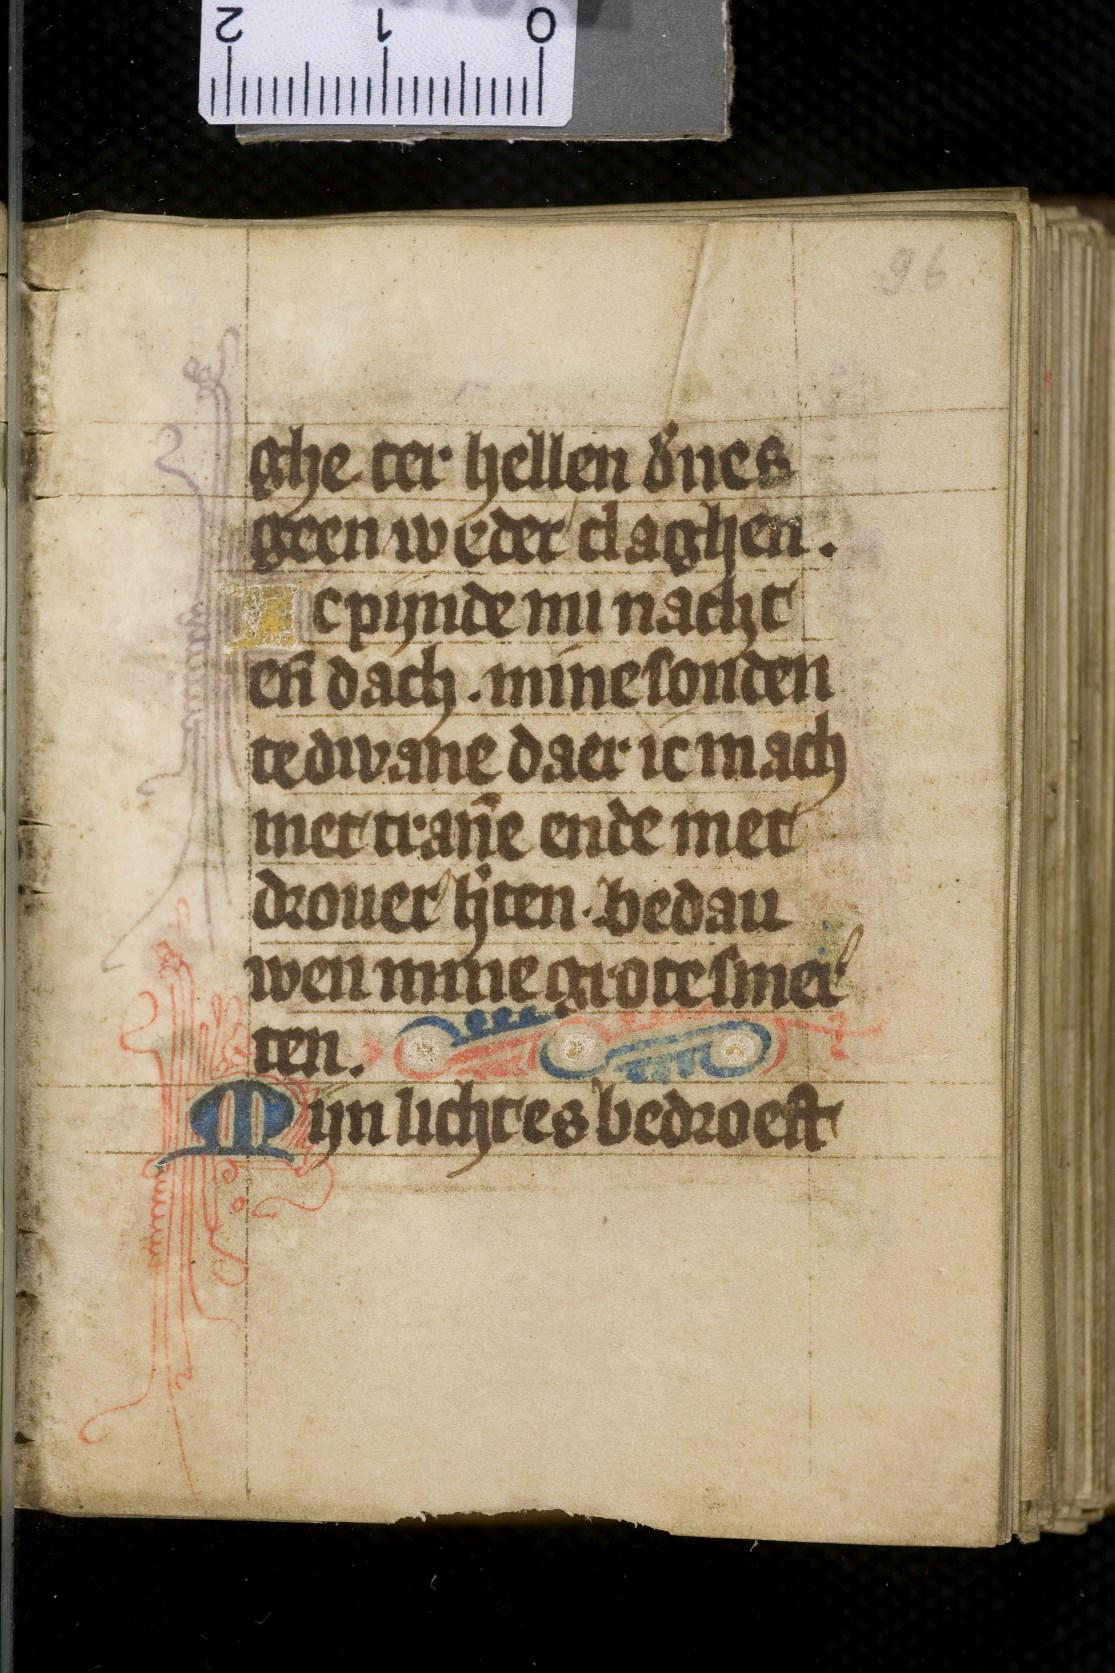 2 1 0
96
ghe ter hellen d'nes
geen weder claghen.
Ic pijnde mi nacht
en̄ dach. mine sonden
te dwane daer ic mach
met tran̄e ende met
drouer h'ten. bedau
wen mine grote smer
ten.
Mijn licht es bedroeft